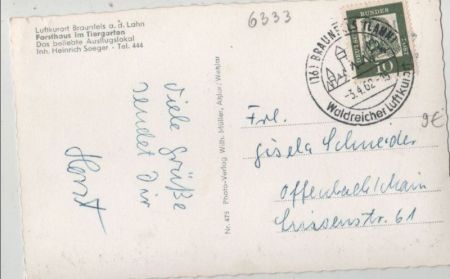 6333
Luftkurort Braunfels a. d. Lahn
Forsthaus im Tiergarten
Das beliebte Ausflugslokal
Inh. Heinrich Seeger · Tel. 444
Viele Grüße
sendet Dir
Horst
Nr. 475 Photo-Verlag Wilh. Müller, Aßlar/Wetzlar
(16) BRAUNFELS (LAHN)
-3.4.62
Waldreicher Luftkurort
10
9€
Frl.
Gisela Schneider
Offenbach/Main
61